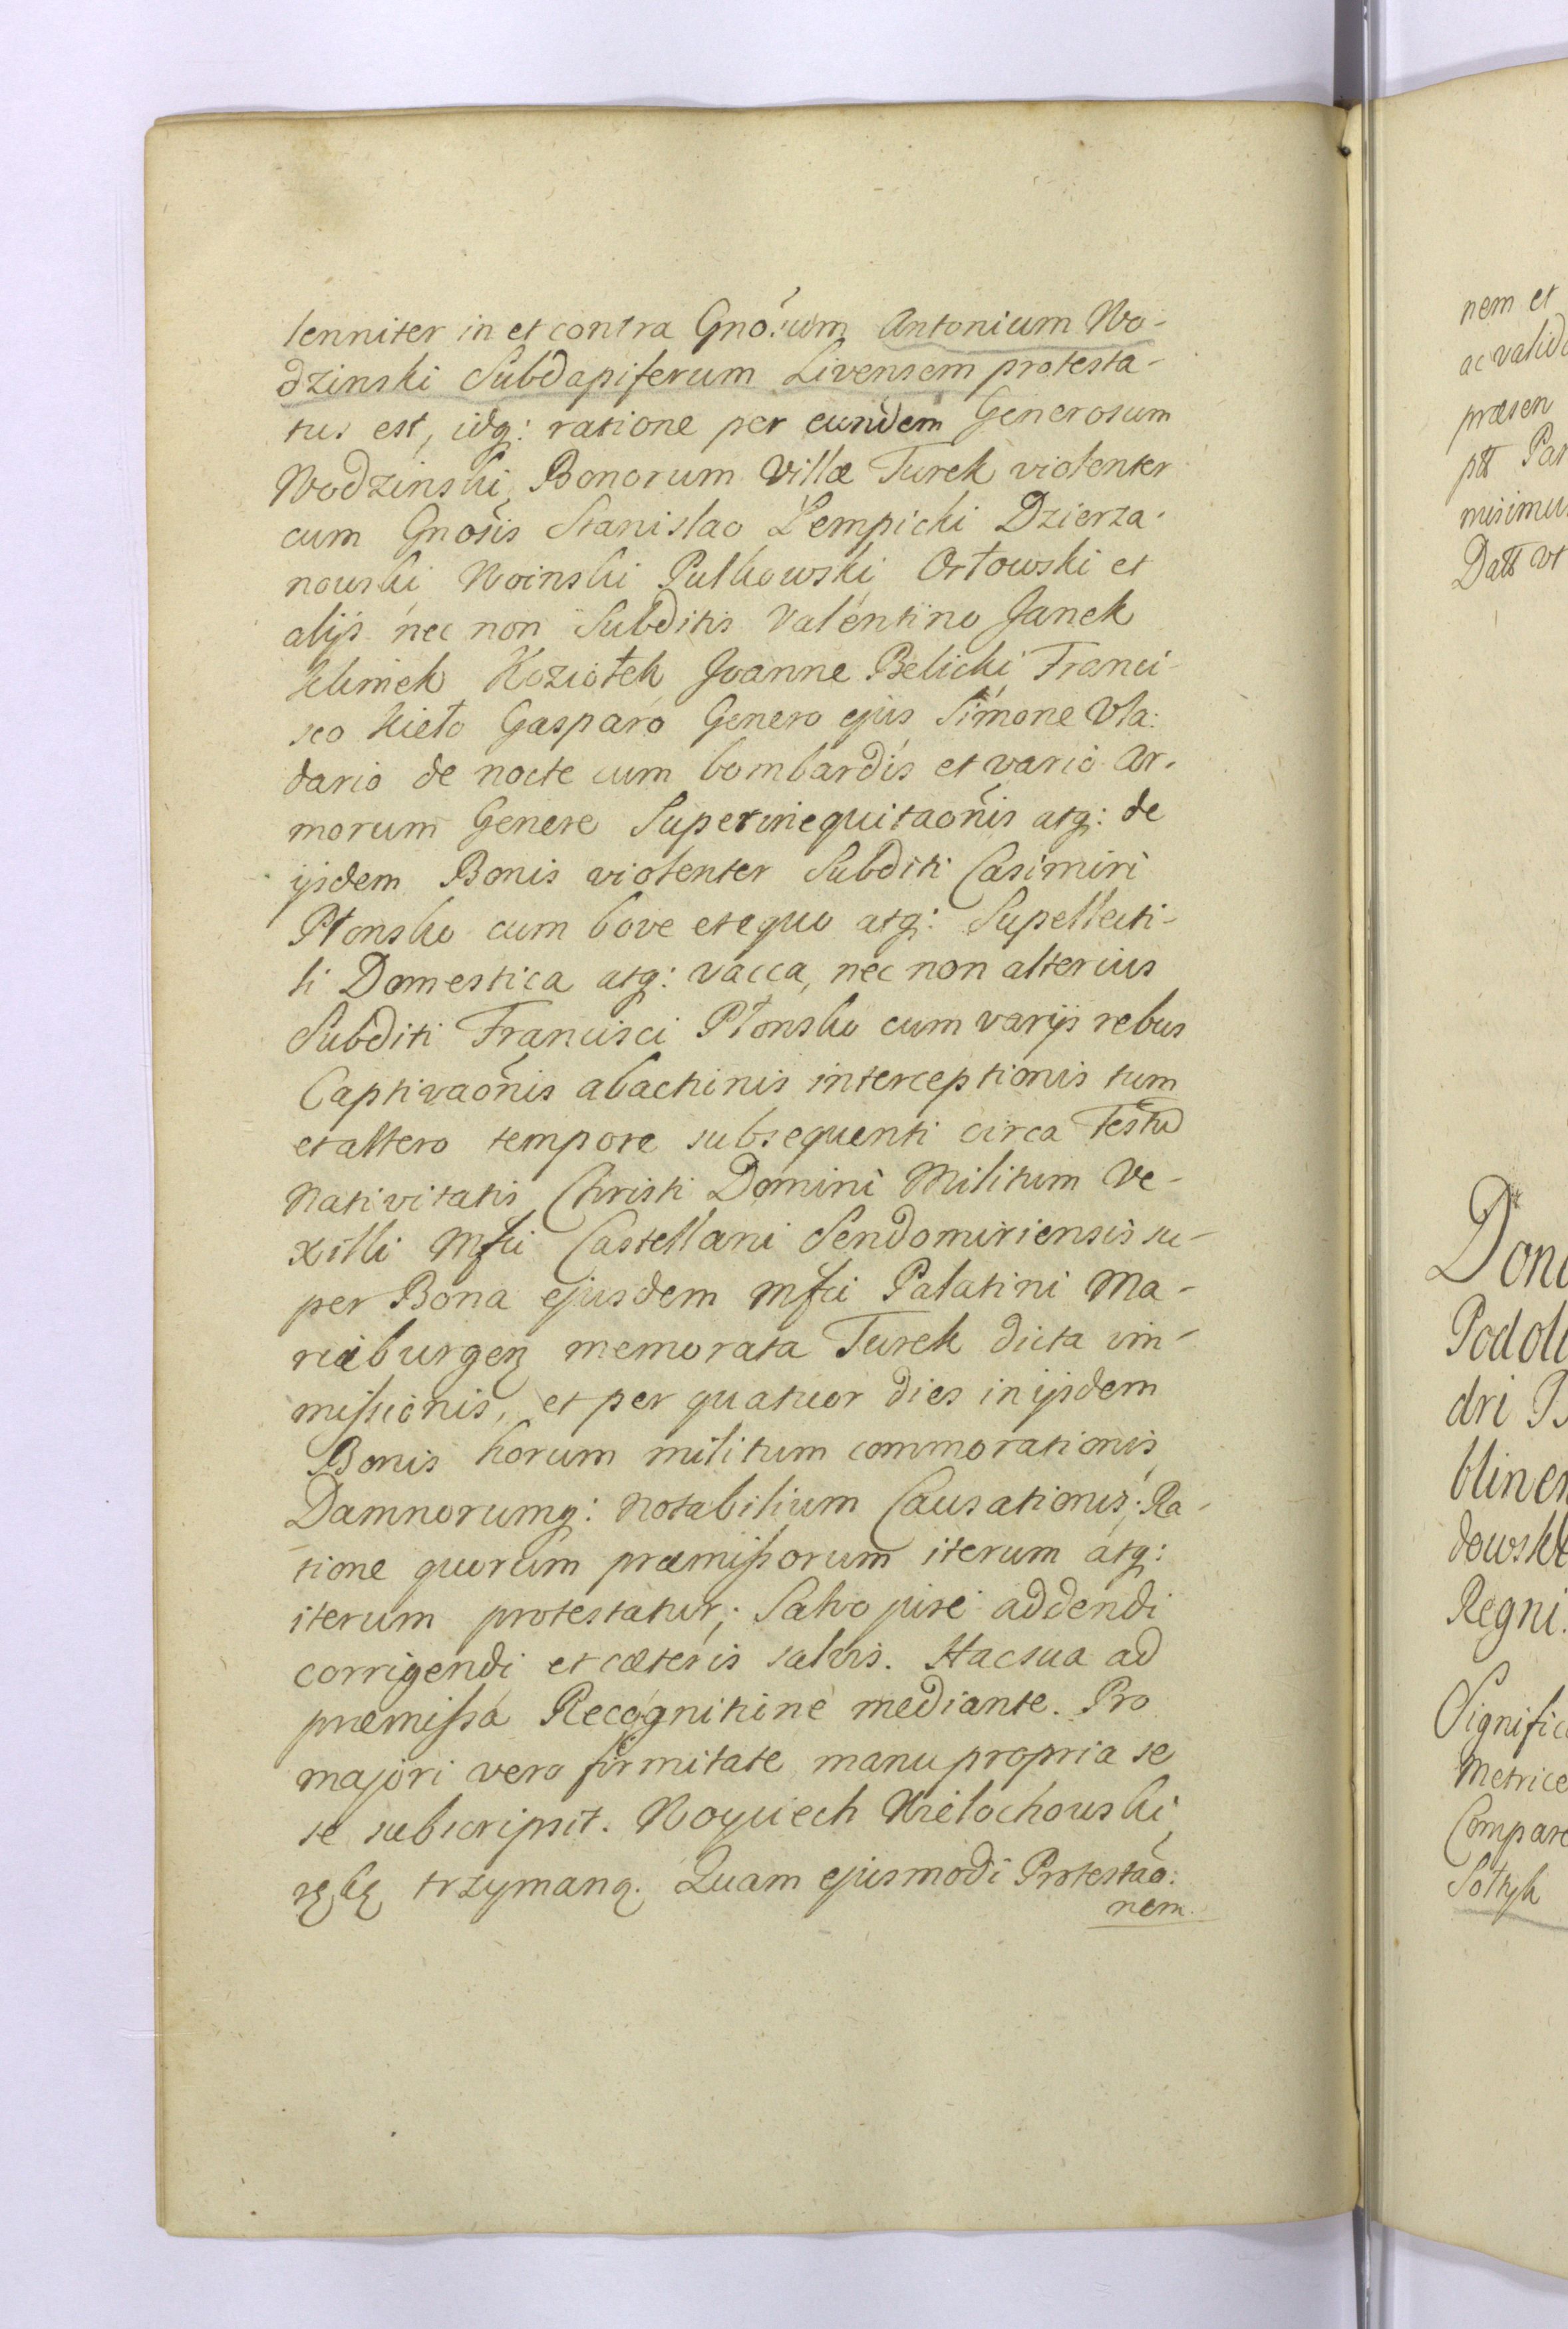 lenniter in et contra Gnosum Antonium Wo-
dzinski Subdapiferum Livensem protesta-
tus est, idq: ratione per eundem Generosum
Wodzinski, Bonorum Villæ Turek violenter
cum Gnosis Stanislao Lempicki Dzierza-
nowski Woinski Pulkowski, Orłowski et
alijs nec non Subditis Valentino Janek
Klimek Koziołek, Joanne Belicki Franci-
sco Kieło Gasparo Genero ejus Simone Vla:
dario de nocte cum bombardis et vario Ar-
morum Genere Superinequitaonis atq: de
ijsdem Bonis violenter Subditi Casimiri
Płonsko cum bove et equo atq: Supellecti-
li Domestica atq: vacca, nec non alterius
Subditi Francisci Płonsko cum varijs rebus
Captivaonis abactinis interceptionis tum
et altero tempore subsequenti circa Festu
Nativitatis Christi Domini Militum Ve-
xilli Mfci Castellani Sendomiriensis su-
per Bona ejusdem Mfci Palatini Ma-
riæburgen memorata Turek dicta im-
missionis, et per quatuor dies in ijsdem
Bonis horum militum commorationis
Damnorumq: Notabilium Causationis; Ra-
tione quorum præmissorum iterum atq:
iterum protestatur; Salvo jure addendi
corrigendi et cæteris salvis. Hac sua ad
præmissa Recognitine mediante. Pro
majori vero firmitate manu propria se
se subscripsit. Woyciech Wielochowski
ręką trzymaną. Quam ejusmodi Protestao:
nem.
nem et
ac valid
præsen
ptt Par
misimus
Datt vt
Dona
Podol
dri
blinen
dowsk
Regni.
Signific
Metrice
Compare
Sołtyk